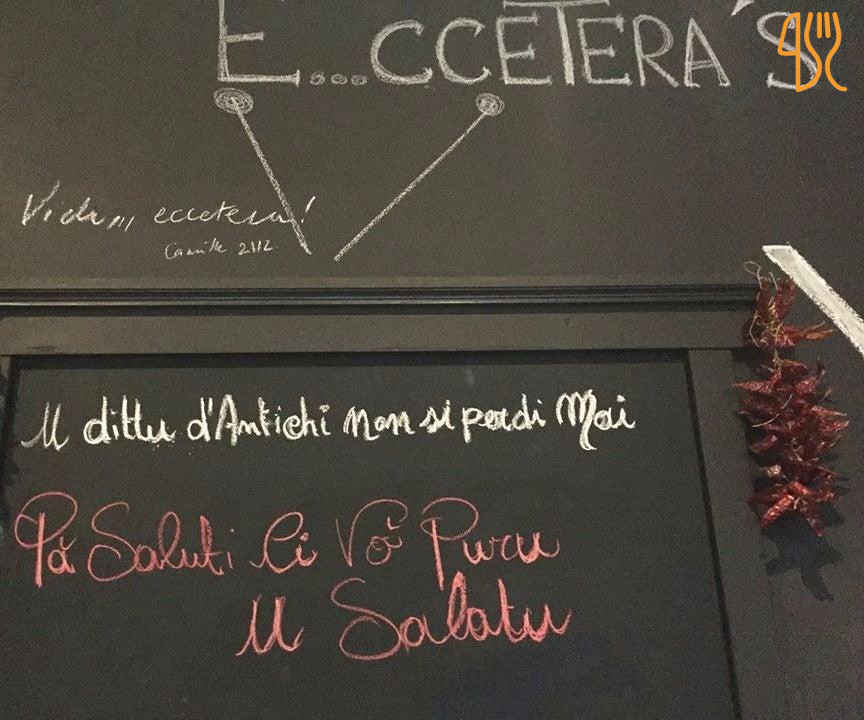 E...CCETERA'S
Vidi,,, eccetera!
Camilla 2112
U dittu d'Antichi non si perdi Mai
Pà Saluti Ci Vò Puru
U Salatu